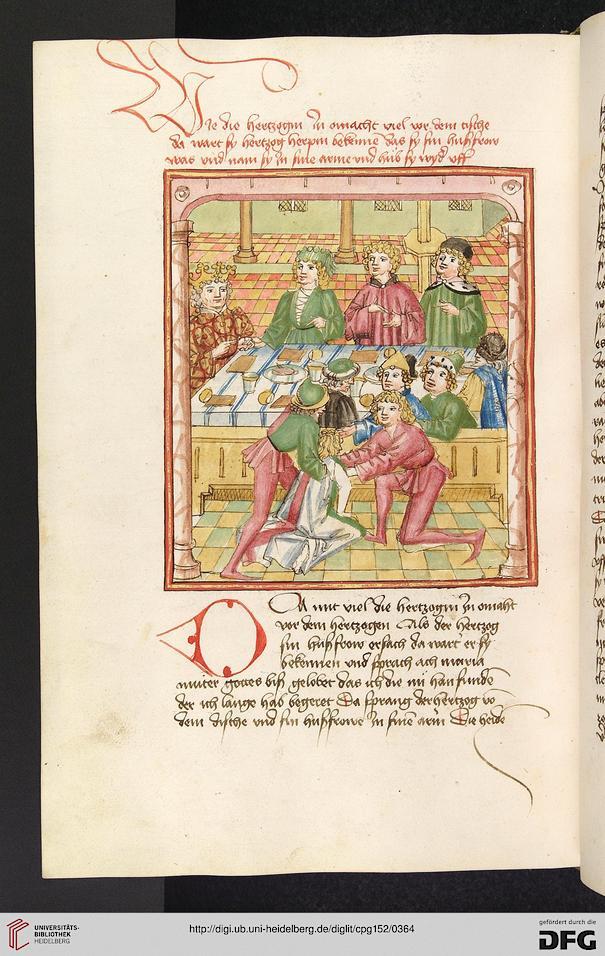 Wie die hertzogin in omacht viel vor dem tische
da wart sy hertzog herpin bekennē das sy sin huſzfrow
was vnd nam sy in sine arme vnd hůb sy wyd vff
Da mit viel die hertzogin in omaht
vor dem hertzogen Als der hertzog
sin huſzfrow ersach da wart er sy
bekennen vnd sprach ach maria
muter gottes biſz gelobet das ich die fundē
der ich lange hab begeret Da sprang der hertzog vō
dem dische vnd sin huſzfrowe in sinē arm Die heide
UNIVERSITÄTS-
BIBLIOTHEK
HEIDELBERG
http://digi.ub.uni-heidelberg.de/diglit/cpg152/0364
gefördert durch die
DFG